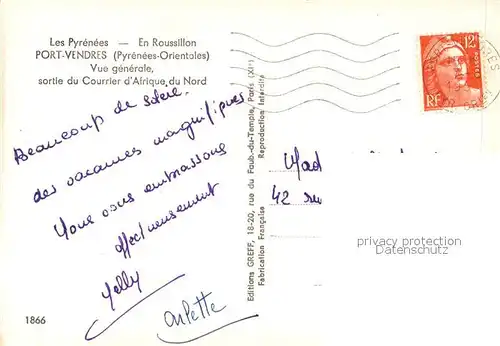 Les Pyrénées — En Roussillon
PORT-VENDRES (Pyrénées-Orientales)
Vue générale,
sortie du Courrier d'Afrique du Nord
Beaucoup de soleil
des vacances magnifiques
Nous vous embrassons
affectueusement
Arlette
1866
Editions GREFF, 18-20, rue du Faub.-du-Temple, Paris (XIe)
Fabrication Française Reproduction Interdite
12F
POSTES
RF
Mad
42 ru
privacy protection
Datenschutz